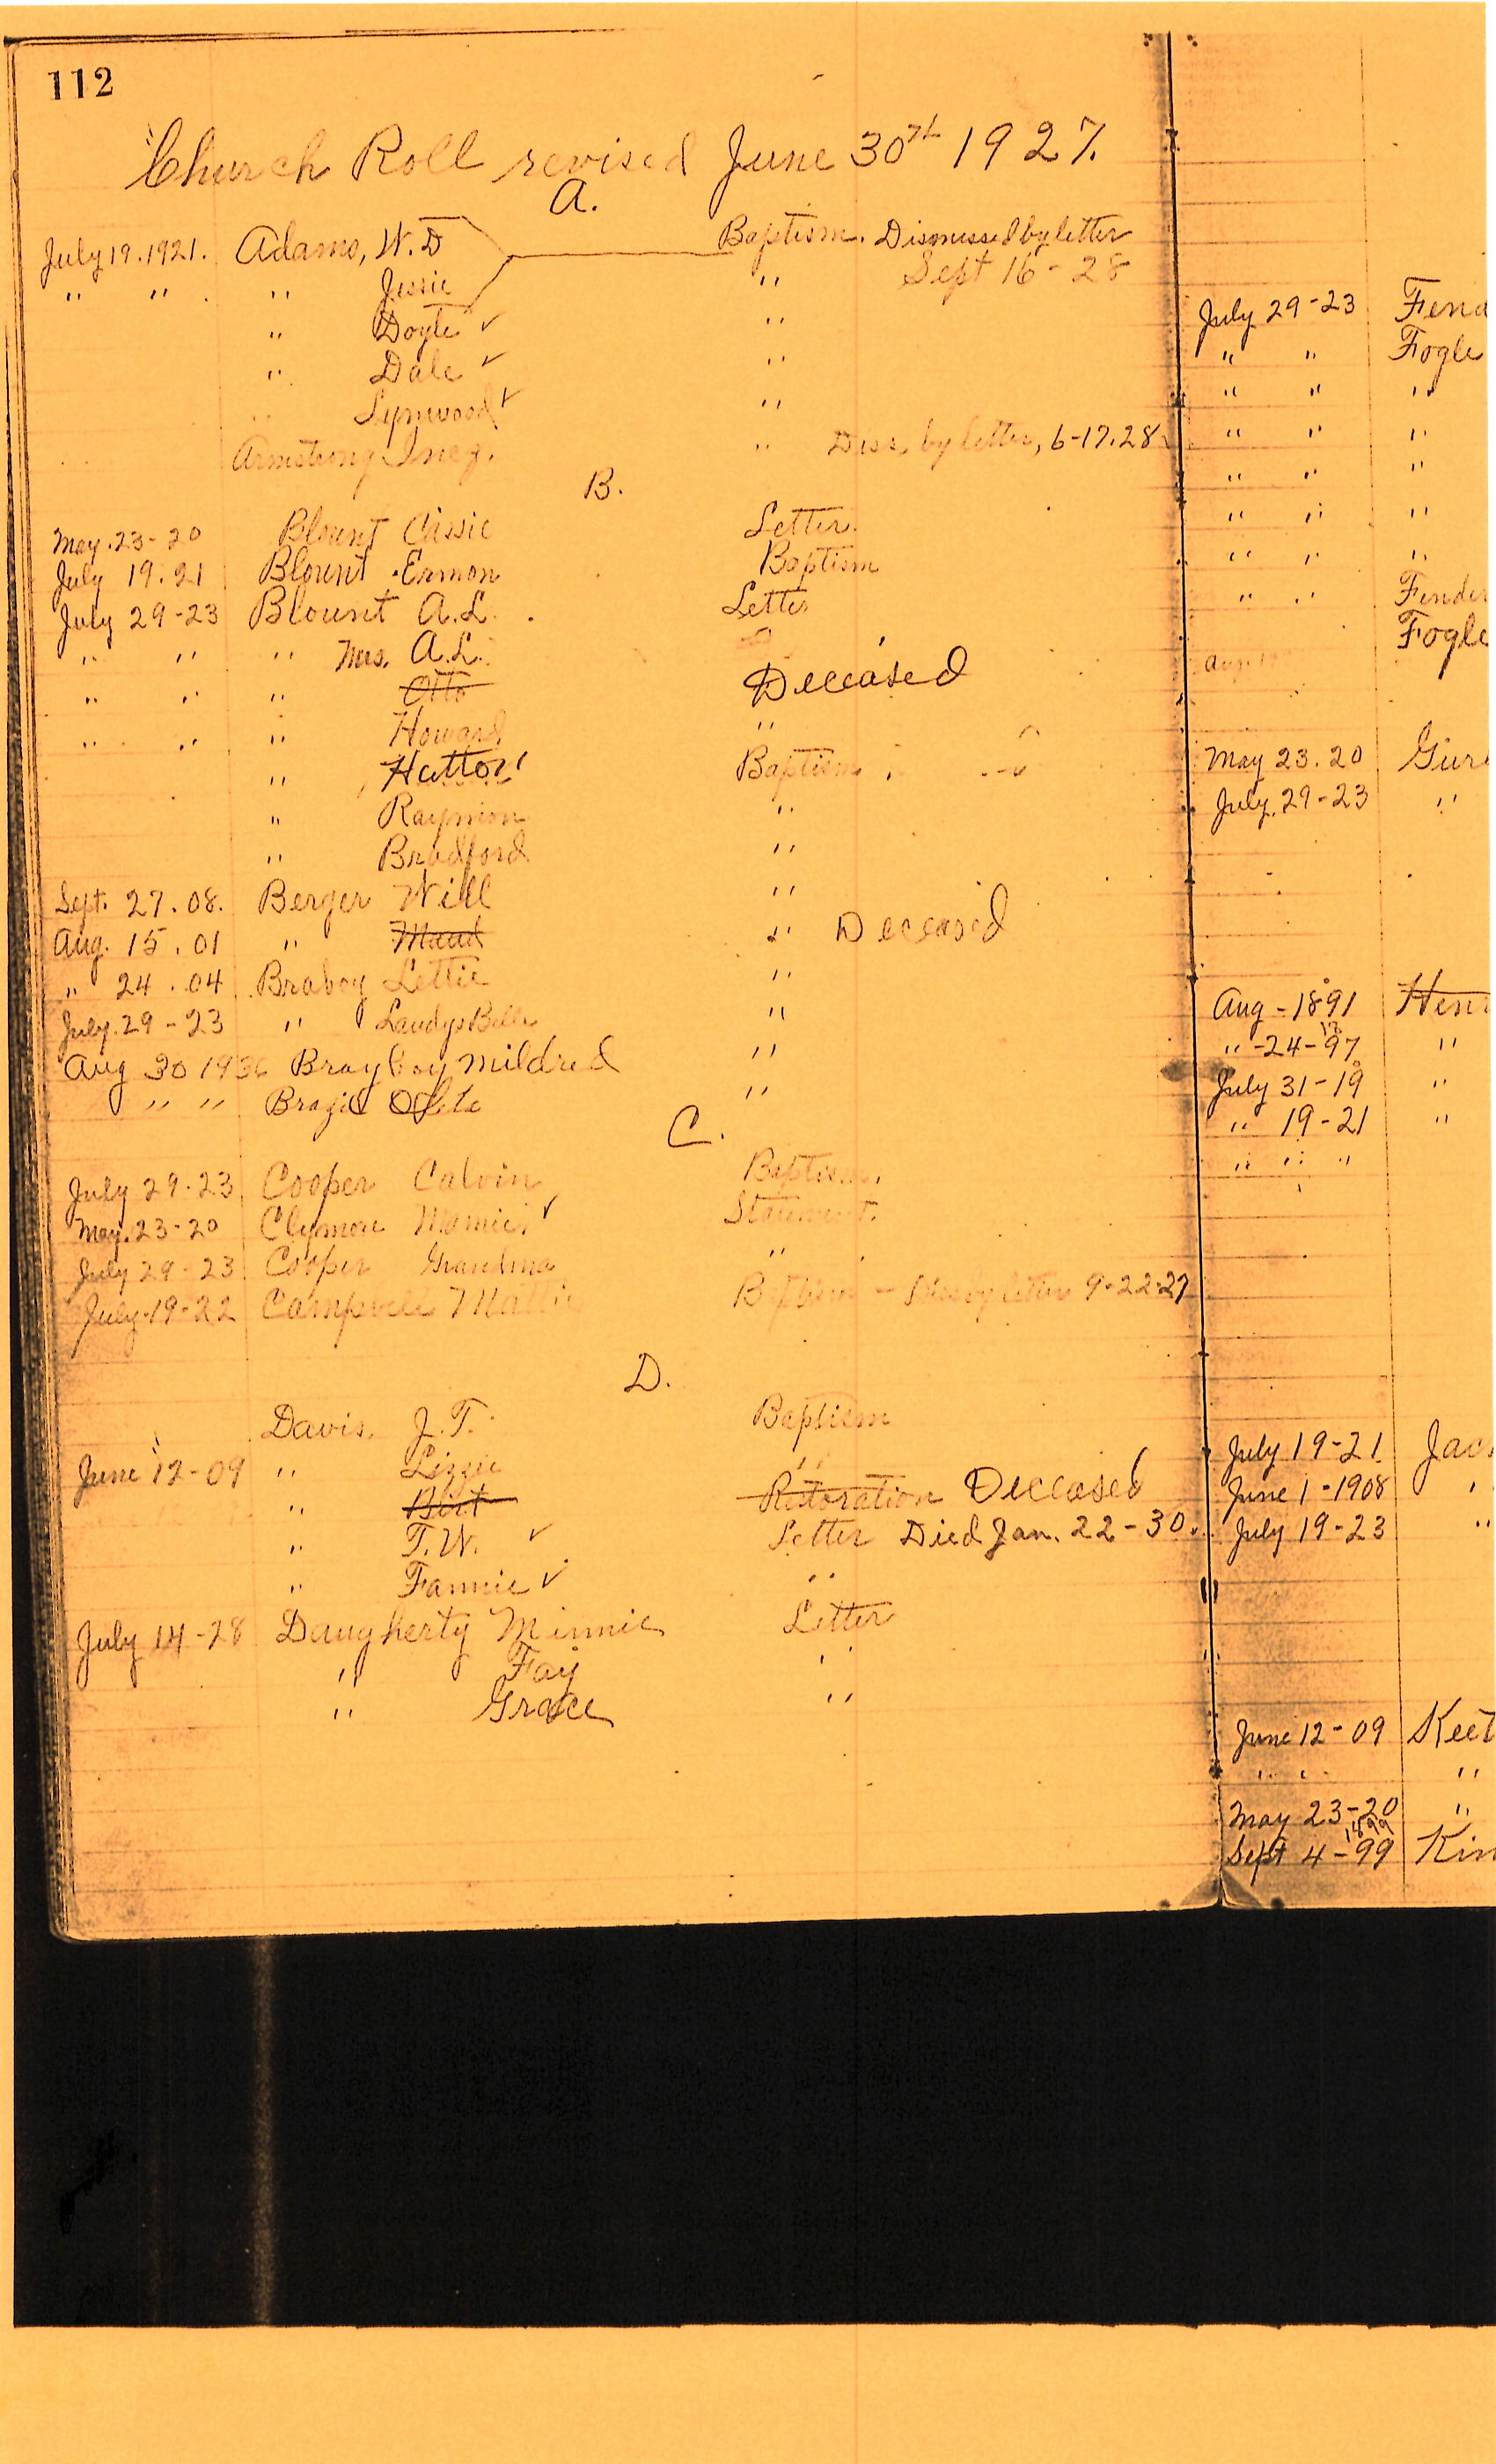 112
Church Roll revised June 30th 1927.
A.
July 19.1921. Adams, W.D Baptism. Dismissed by letter
" " " Jessie " Sept 16-28
" Doyle ✓ "
" Dale ✓ "
" Lynwood ✓ "
Armstrong Inez. " Diss. by letter, 6-17.28
B.
May.23-20 Blount Cassie Letter.
July 19.21 Blount Ermon Baptism
July 29-23 Blount A.L. Letter
" " " Mrs. A.L.
" " " Otto Deceased
" " " Howard "
" Hatton Baptism
" Raymon "
" Bradford "
Sept. 27.08. Berger Will "
Aug. 15.01 " Maud " Deceased
" 24.04 Braboy Lettie "
July.29-23 " Landys Belle "
Aug 30 1936 Brayboy Mildred "
" " Brazil "
C.
July 29-23 Cooper Calvin Baptism.
May.23-20 Clymore Mamie ✓ Statement.
July 29-23 Cooper Grandma "
July-19-22 Mattie Baptism - Diss by letter 9-22-27
D.
Davis, J.T. Baptism
June 12-09 " Lizzie "
" Birt Restoration Deceased
" T.W. ✓ Letter Died Jan. 22-30.
" Fannie ✓ "
July 14-28 Daugherty Minnie Letter
" Fay "
" Grace "
July 29-23 Fend
" " Fogle
" " "
" " "
" " "
" " "
" " "
" " Fender
Fogle
May 23.20 Gur
July.29-23 "
Aug-1891 Hen
"-24-97 "
July 31-19 "
" 19-21 "
" " "
July 19-21. Jac
June 1-1908 "
July 19-23 "
June 12-09 Keet
" " "
May 23-20 "
1899
Sept 4-99 Kin